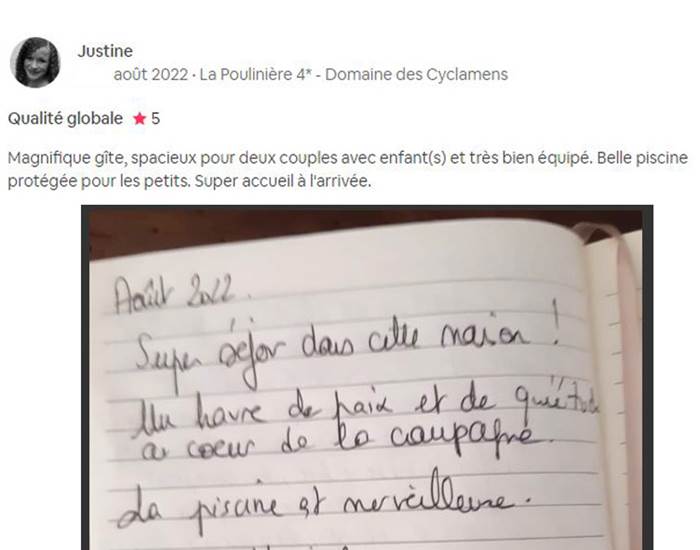 Justine
août 2022 · La Poulinière 4* - Domaine des Cyclamens
Qualité globale ★ 5
Magnifique gîte, spacieux pour deux couples avec enfant(s) et très bien équipé. Belle piscine
protégée pour les petits. Super accueil à l'arrivée.
Août 2022.
Super séjour dans cette maison !
Un havre de paix et de quiétude
au coeur de la campagne.
La piscine est merveilleuse.